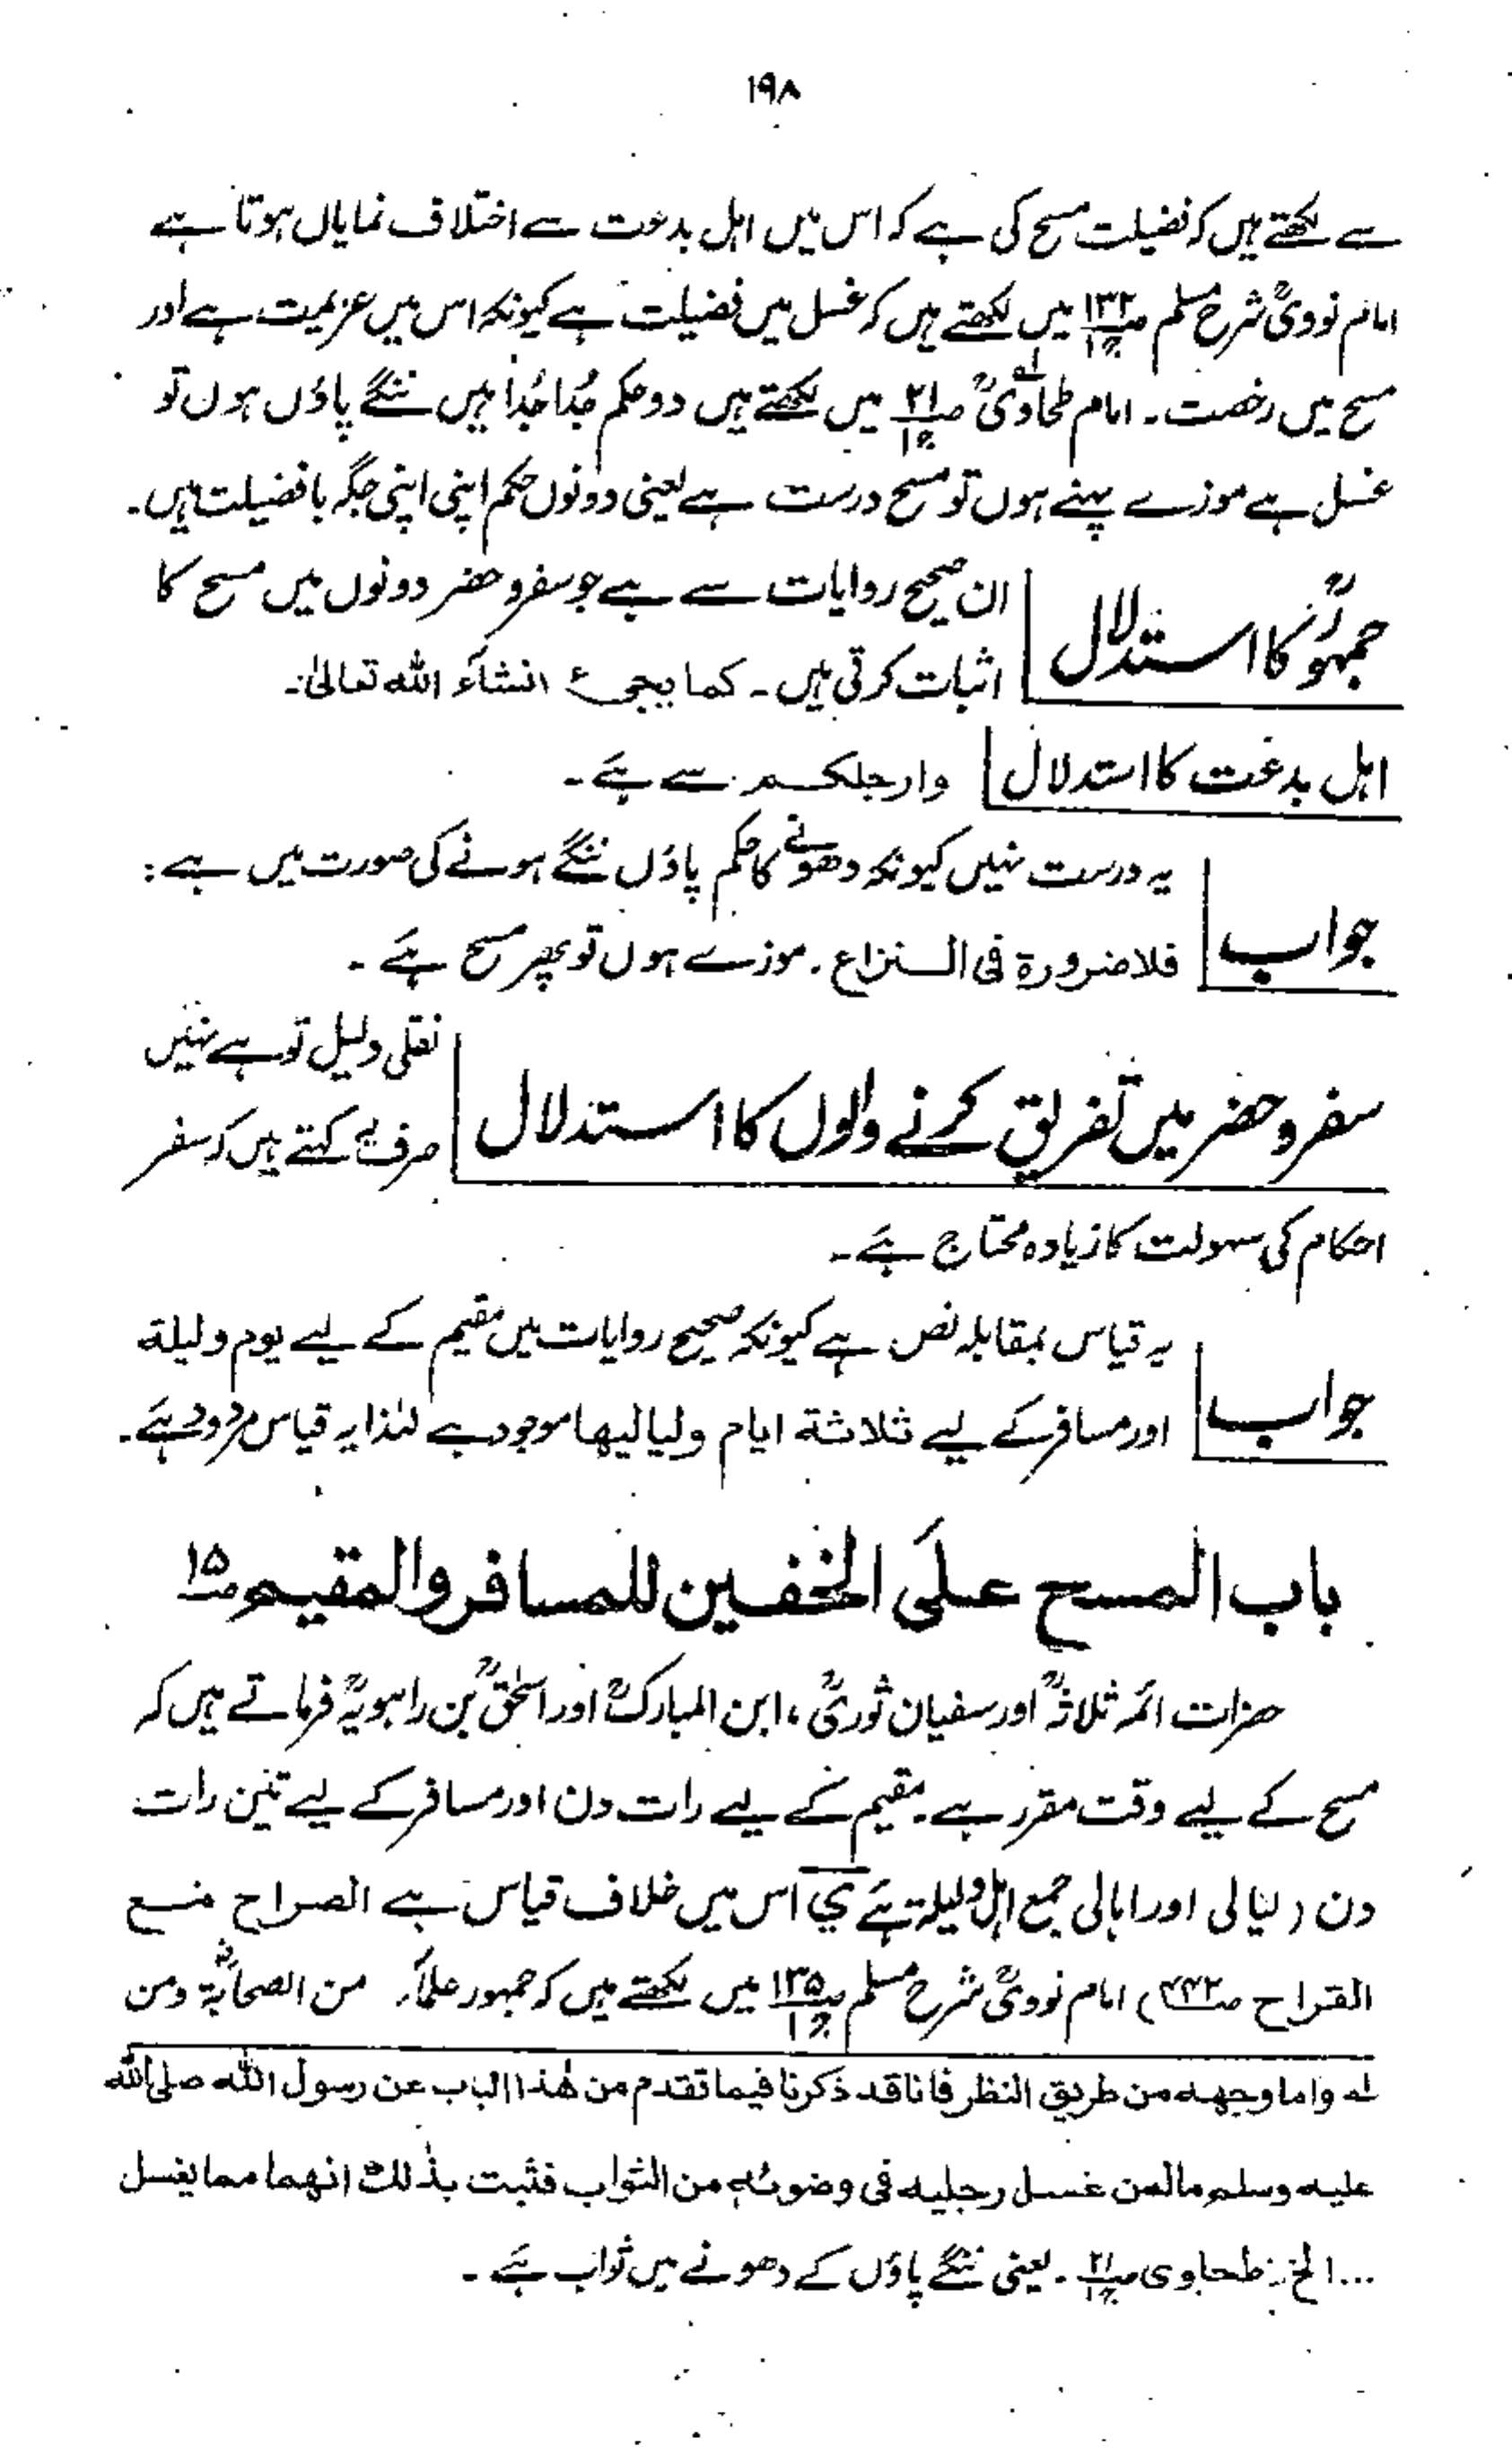 ۱۹۸
سے لکھتے ہیں کہ فضیلت مسح کی ہے کہ اس میں اہل بدعت سے اختلاف نمایاں ہوتا ہے
امام نوویؒ شرح مسلم صـ۱۳۲ ج۱ میں لکھتے ہیں کہ غسل میں فضیلت ہے کیونکہ اس میں عزیمت ہے اور
مسح میں رخصت۔ امام طحاویؒ لہ صـ۲۱ ج۱ میں لکھتے ہیں دو حکم جُدا جُدا ہیں ننگے پاؤں ہوں تو
غسل ہے موزے پہنے ہوں تو مسح درست ہے یعنی دونوں حکم اپنی اپنی جگہ بافضیلت ہیں۔
جمہورؒ کا استدلال ان صحیح روایات سے ہے جو سفر و حضر دونوں میں مسح کا
اثبات کرتی ہیں۔ کما یجیء انشاء اللہ تعالیٰ۔
اہل بدعت کا استدلال وارجلکم سے ہے۔
جواب یہ درست نہیں کیونکہ دھونے کا حکم پاؤں ننگے ہونے کی صورت میں ہے:
فلا ضرورة فی النزاع۔ موزے ہوں تو پھر مسح ہے۔
سفر و حضر میں تفریق کرنے والوں کا استدلال نقلی دلیل تو ہے نہیں
صرف یہ کہتے ہیں کہ سفر
احکام کی سہولت کا زیادہ محتاج ہے۔
جواب یہ قیاس بمقابلہ نص ہے کیونکہ صحیح روایات میں مقیم کے لیے یوم ولیلة
اور مسافر کے لیے ثلاثة ایام ولیالیھا موجود ہے لہٰذا یہ قیاس مردود ہے۔
باب المسح علی الخفین للمسافر والمقیم صـ۱۵
حضرات ائمہ ثلاثہؒ اور سفیان ثوریؒ، ابن المبارکؒ اور اسحٰقؒ بن راہویہؒ فرماتے ہیں کہ
مسح کے لیے وقت مقرر ہے۔ مقیم کے لیے رات دن اور مسافر کے لیے تین رات
دن (لیالی اور اہالی جمع اہل ولیلة ہے ي اس میں خلاف قیاس ہے الصراح منع
القراح صـ۴۴۲) امام نوویؒ شرح مسلم صـ۱۳۵ ج۱ میں لکھتے ہیں کہ جمہور علماء من الصحابةؓ ومن
لہ واما وجهہ من طریق النظر فانا قد ذکرنا فیما تقدم من ھٰذا الباب عن رسول اللہ صلی اللہ
علیہ وسلم ما لمن غسل رجلیہ فی وضوئہ من الثواب فثبت بذٰلك انھما مما یغسل
...الخ: طحاوی صـ۲۱ ج۱۔ یعنی ننگے پاؤں کے دھونے میں ثواب ہے۔